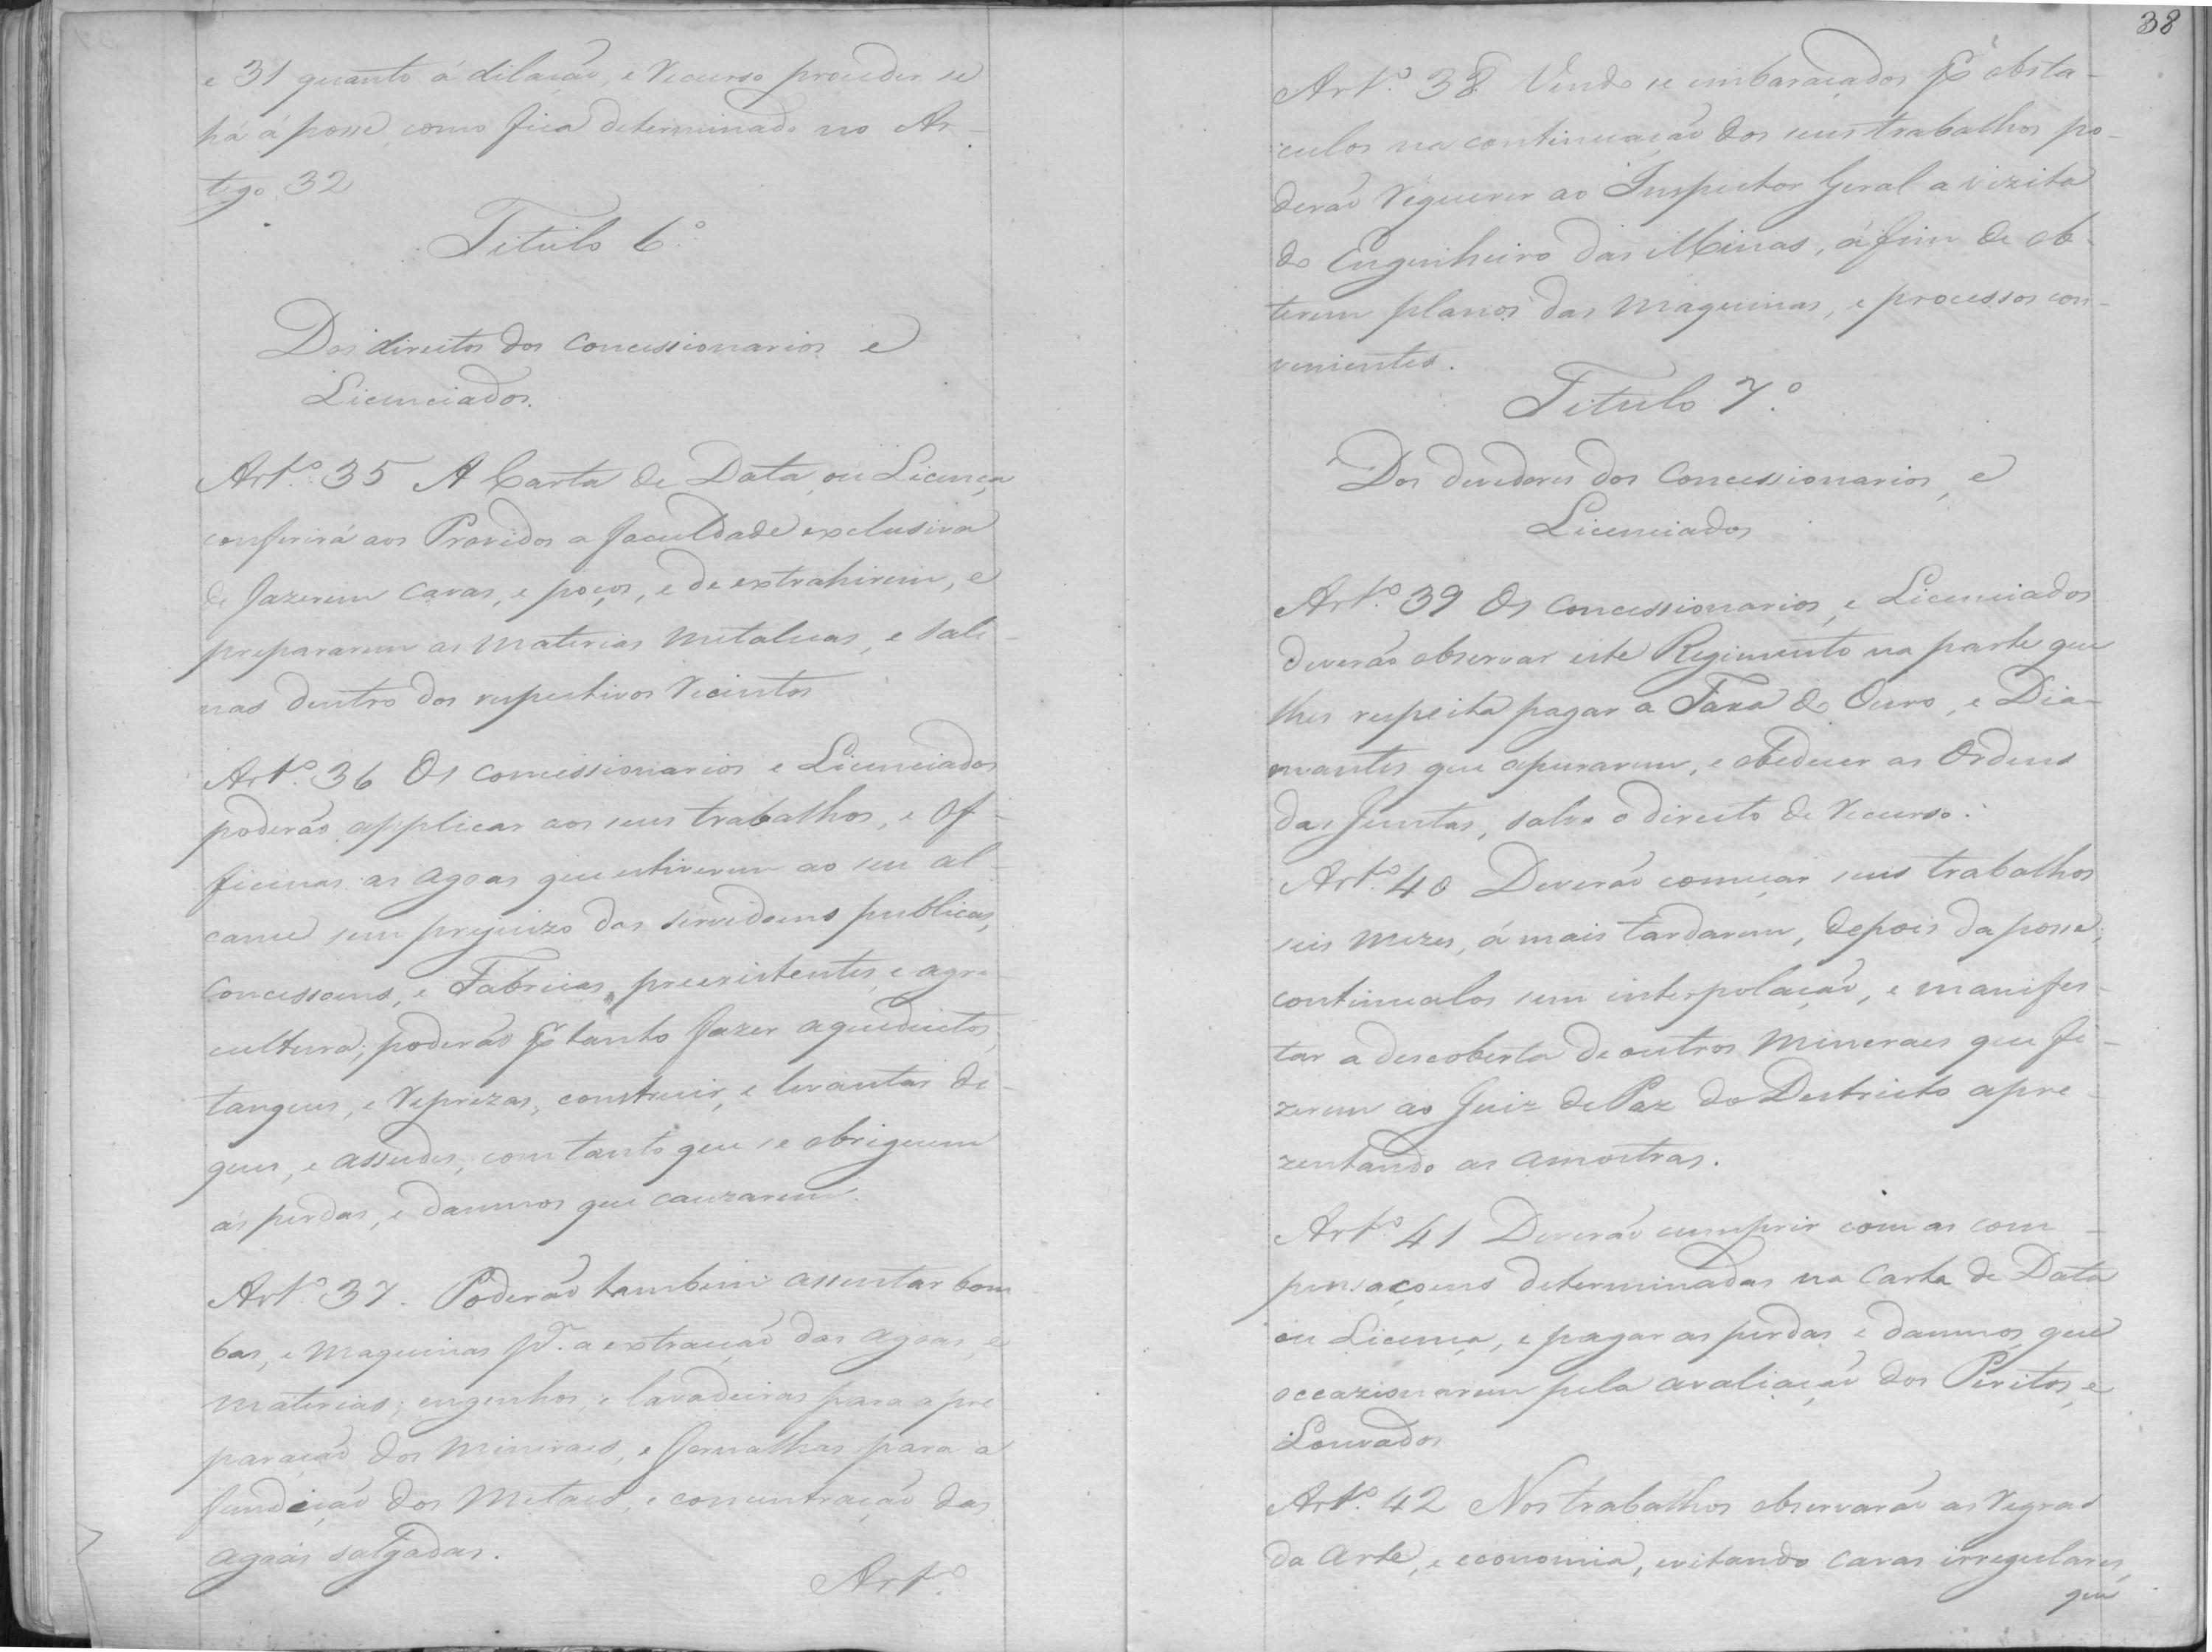 e 31 quanto á dilação, e Recurso proceder se
há á posse como fica determinado no Ar-
tigo 32
Titulo 6.º
Dos direitos dos Concessionarios e
Licenciados.
Art.º 35 A Carta de Data ou Licença
conferirá aos Providos a faculdade exclusiva
de fazerem cavas, e poços, e de extrahirem, e
prepararem as materias metalicas, e sali-
nas dentro dos respectivos Recintos
Art.º 36 Os Concessionarios e Licenciados
poderão applicar aos seus trabalhos, e Of-
ficinas as agoas que estiverem ao seu al-
cance sem prejuizo das servidoens publicas,
Concessoens, e Fabricas preexistentes, e agri-
cultura; poderão p tanto fazer aqueductos,
tanques, e Reprezas, construir, e levantar di-
ques, e assudes, com tanto que se obriguem
ás perdas, e damnos que cauzarem.
Art.º 37. Poderão tambem assentar bom
bas, e maquinas p.ª a extracção das agoas, e
materias; engenhos, e lavadeiras para a pre
paração dos Mineraes, e fornalhas para a
fundição dos Metaes, e concentração das
agoas salgadas.
Art.º
38
Art.º 38. Vendo se embaraçados p obsta-
culos na continuação dos seus trabalhos po-
derão Requerer ao Inspector Geral a vizita
do Engenheiro das Minas, á fim de ob-
terem planos das maquinas, e processos con-
venientes.
Titulo 7.º
Dos devedores dos Concessionarios, e
Licenciados
Art.º 39 Os Concessionarios, e Licenciados
deverão observar este Regimento na parte que
lhes respeita pagar a Taxa do Ouro, e Dia-
mantes que apurarem, e obedecer as Ordens
das Juntas, salvo o direito de Recurso.
Art.º 40 Deverão começar seus trabalhos
seis mezes, á mais tardarem, depois da posse,
continualos sem interpolação, e manifes-
tar a descoberta de outros Mineraes que fi-
zerem ao Juiz de Paz do Destricto apre
zentando as amostras.
Art.º 41 Deverão cumprir com as com-
pensaçoens determinadas na Carta de Data
ou Licença, e pagar as perdas e damnos que
occazionarem pela avaliação dos Peritos, e
Louvados
Art.º 42 Nos trabalhos observarão as Regras
da Arte, e economia, evitando cavas irregulares,
que